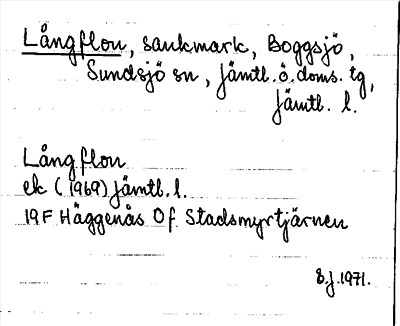 Långflon, sankmark, Boggsjö,
Sundsjö sn, Jämtl. ö. doms. tg,
Jämtl. l.
Långflon
ek (1969) Jämtl. l.
19F Häggenås Of Stadsmyrtjärnen
8.j.1971.